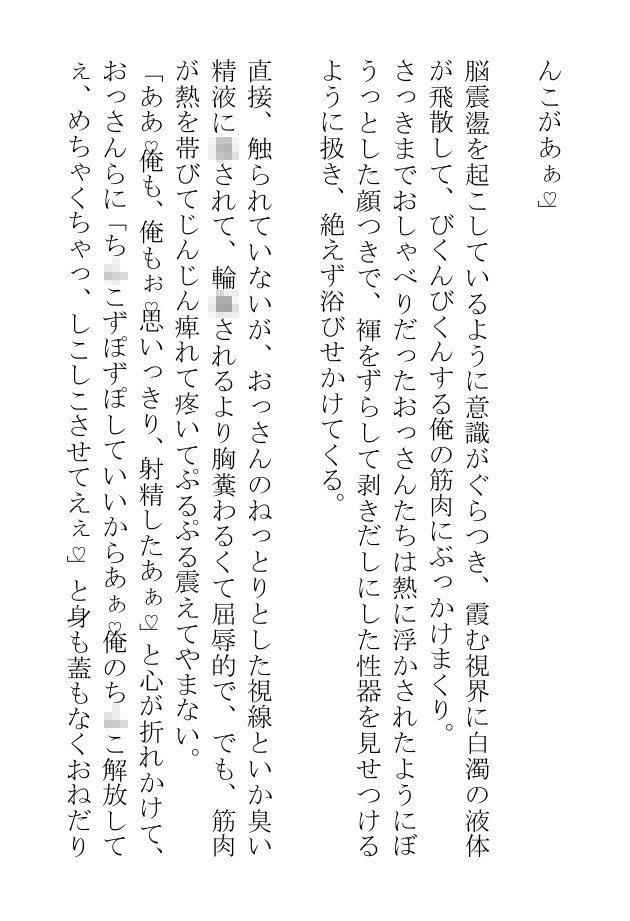 んこがあぁ♡」
脳震盪を起こしているように意識がぐらつき、霞む視界に白濁の液体
が飛散して、びくんびくんする俺の筋肉にぶっかけまくり。
さっきまでおしゃべりだったおっさんたちは熱に浮かされたようにぼ
うっとした顔つきで、褌をずらして剥きだしにした性器を見せつける
ように扱き、絶えず浴びせかけてくる。
直接、触られていないが、おっさんのねっとりとした視線といか臭い
精液にされて、輪されるより胸糞わるくて屈辱的で、でも、筋肉
が熱を帯びてじんじん痺れて疼いてぷるぷる震えてやまない。
「ああ♡俺も、俺もぉ♡思いっきり、射精したあぁ♡」と心が折れかけて、
おっさんらに「ちこずぽずぽしていいからあぁ♡俺のちこ解放して
ぇ、めちゃくちゃっ、しこしこさせてえぇ♡」と身も蓋もなくおねだり